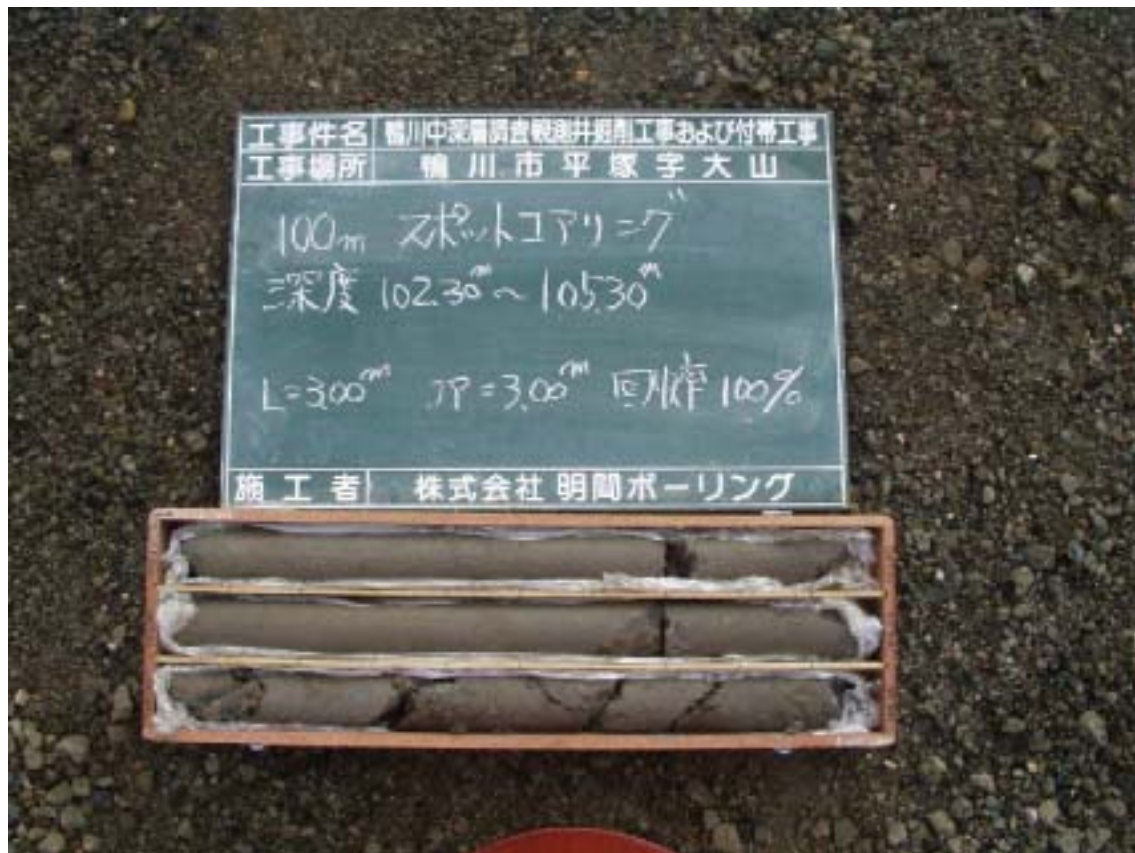 工事件名 鴨川中深層調査観測井掘削工事および付帯工事
工事場所 鴨川市平塚字大山
100m スポットコアリング
深度 102.30m～105.30m
L=3.00m コア=3.00m 回収率 100%
施工者 株式会社明間ボーリング